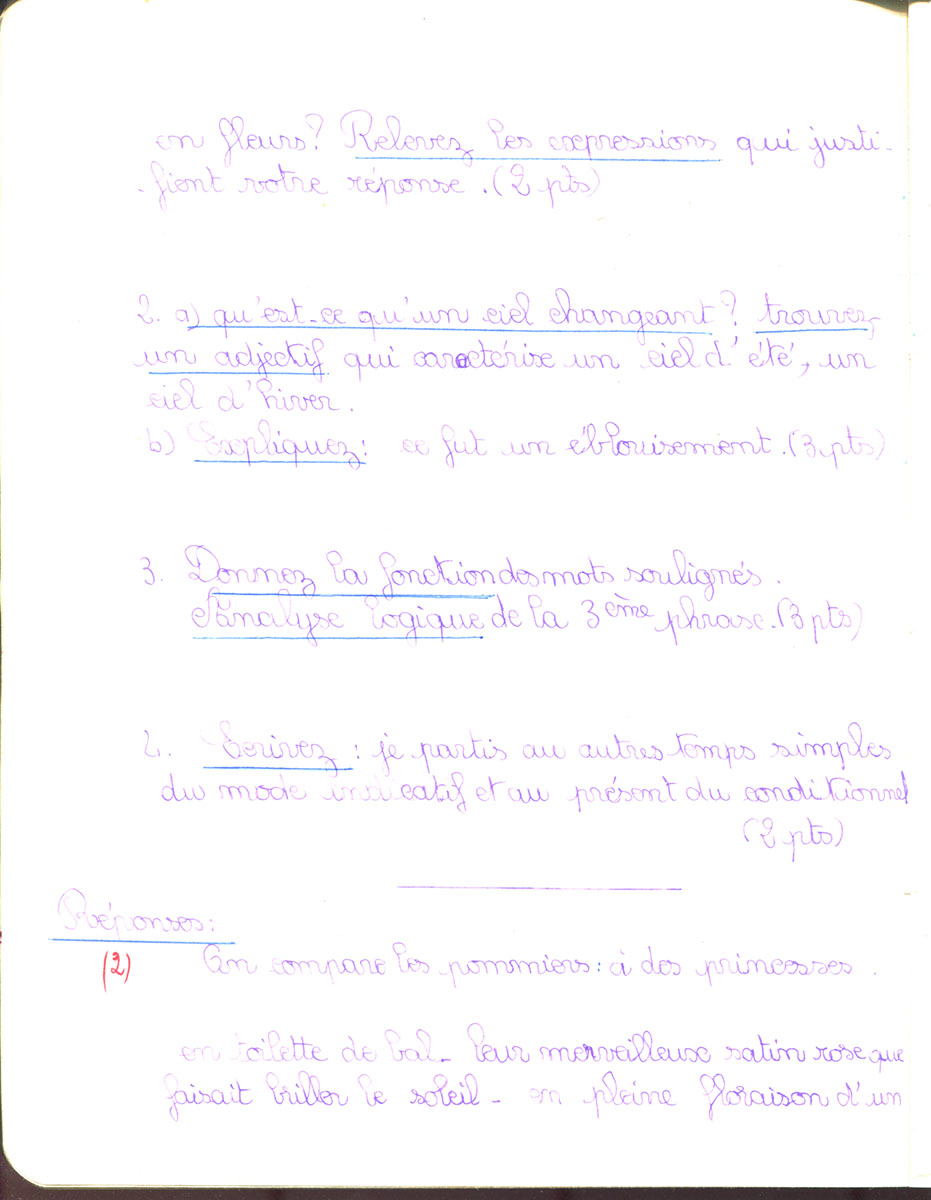 en fleurs? Relevez les expressions qui justi-
-fient votre réponse. (2 pts)
2. a) qu'est-ce qu'un ciel changeant? trouvez
un adjectif qui caractérise un ciel d'été, un
ciel d'hiver.
b) Expliquez: ce fut un éblouisement. (3 pts)
3. Donnez la fonction des mots soulignés.
Analyse logique de la 3ème phrase. (3 pts)
4. Ecrivez: je partis au autres temps simples
du mode indicatif et au présent du conditionnel
(2 pts)
Réponses:
(2) On compare les pommiers: à des princesses.
en toilette de bal - leur merveilleux satin rose que
faisait briller le soleil - en pleine floraison d'un